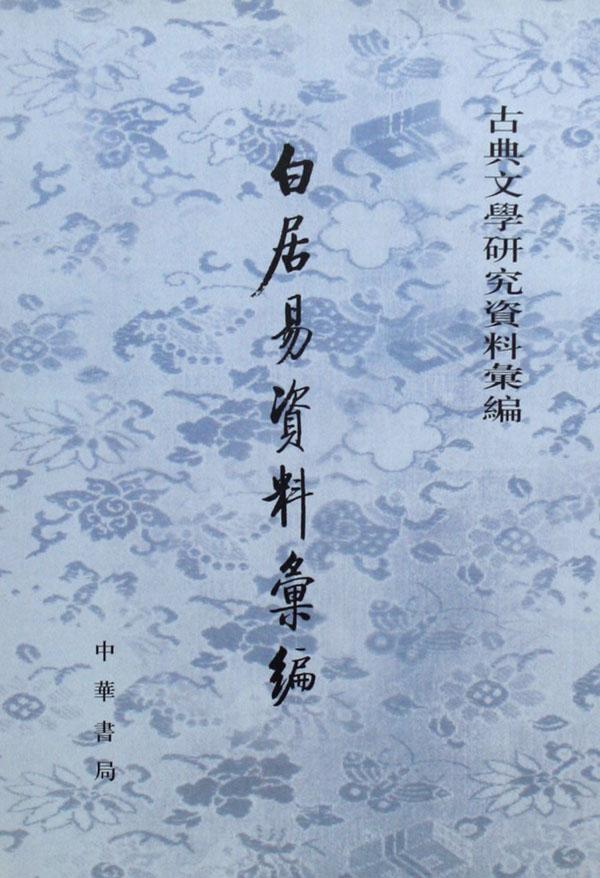 古典文學研究資料彙編
白居易資料彙編
中華書局